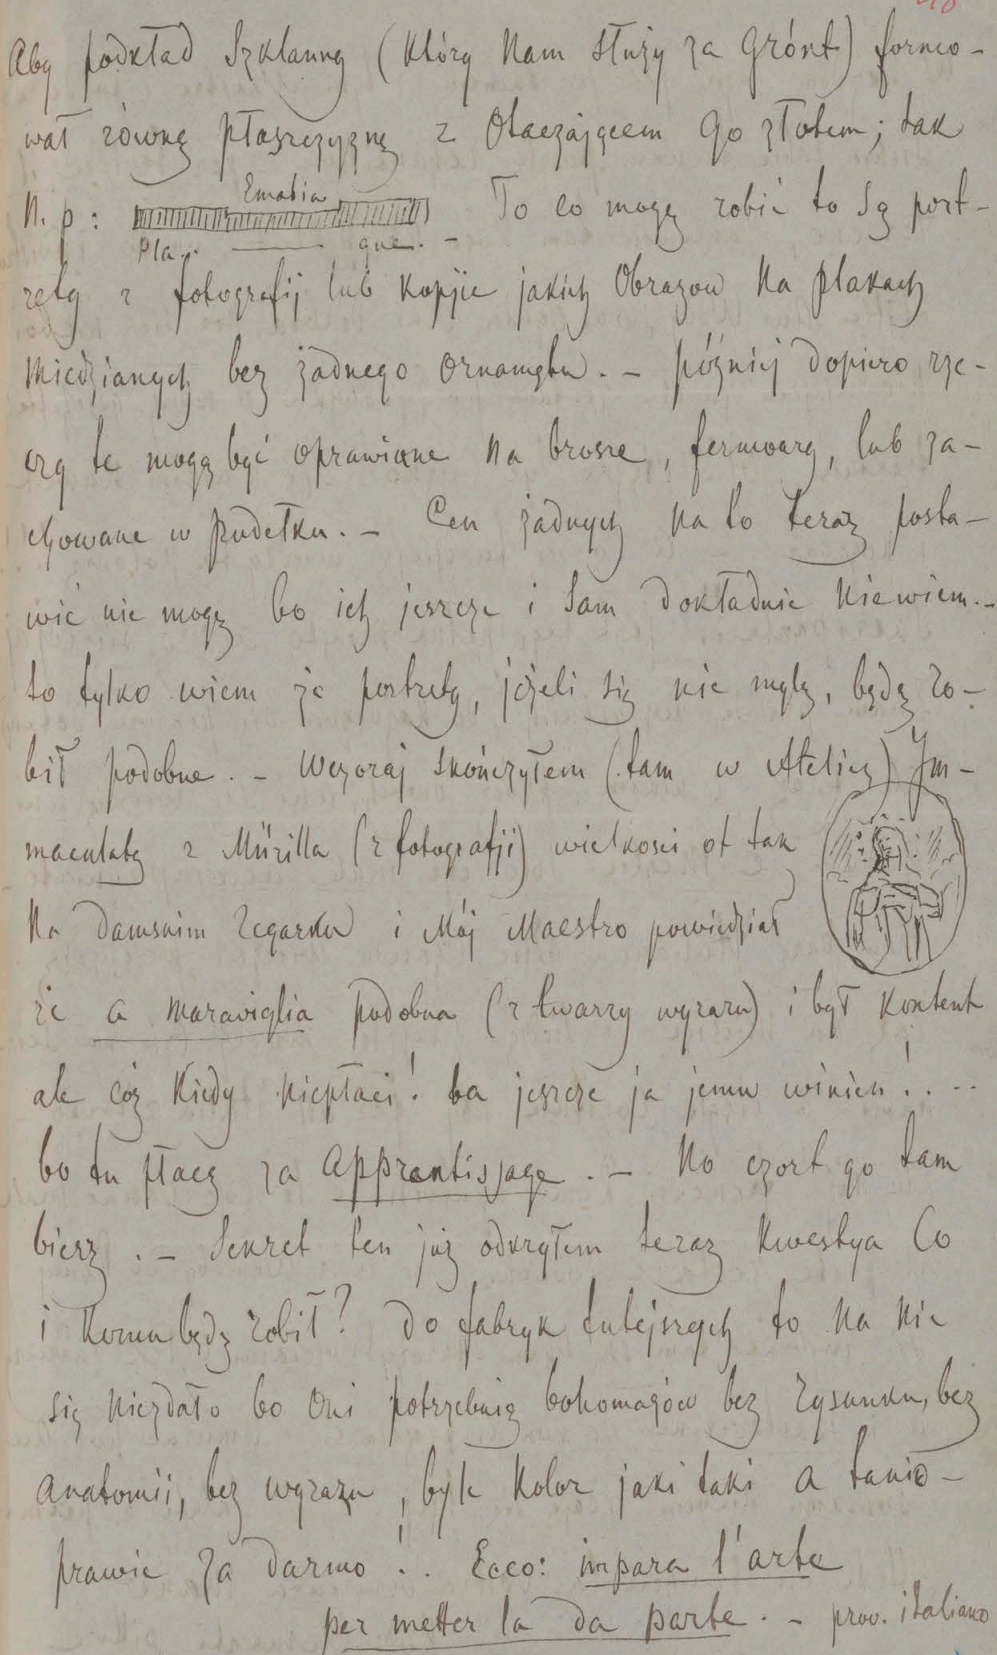 Aby podkład szklanny (który nam służy za Grónt) formo-
wał równą płaszczyznę z otaczającem go złotem; tak
N. p: Emalia To co mogę robić to są port-
Pla.. —— que. -
rety z fotografij lub kopije jakich Obrazow na plakach
miedzianych bez żadnego ornamętu. - później dopiero rze-
czy te mogą być oprawione na brosze, fermoary, lub za-
chowane w pudełku. - Cen żadnych na to teraz posta-
wić nie mogę bo ich jeszcze i sam dokładnie niewiem. -
to tylko wiem że portrety, jeżeli się nie mylę, będę ro-
bił podobne. - Wczoraj skończyłem (tam w Atelier) Im-
maculatę z Mürilla (z fotografji) wielkosci ot tak
na damskim zegarku i Mój Maestro powiedział
że a maraviglia podobna (z twarzy wyrazu) i był kontent
ale cóż kiedy niepłaci! ba jeszcze ja jemu winien! . --
bo tu płacę za apprentissage. - No czort go tam
bierz. - Sekret ten już odkryłem teraz kwestya Co
i komu będę robił? do fabryk tutejszych to na nic
się niezdało bo oni potrzebuią bohomazów bez rysunku, bez
anatomii, bez wyrazu, byle kolor jaki taki a tanio -
prawie za darmo! .. Ecco: impara l'arte
per metter la da parte. - prov. italiano